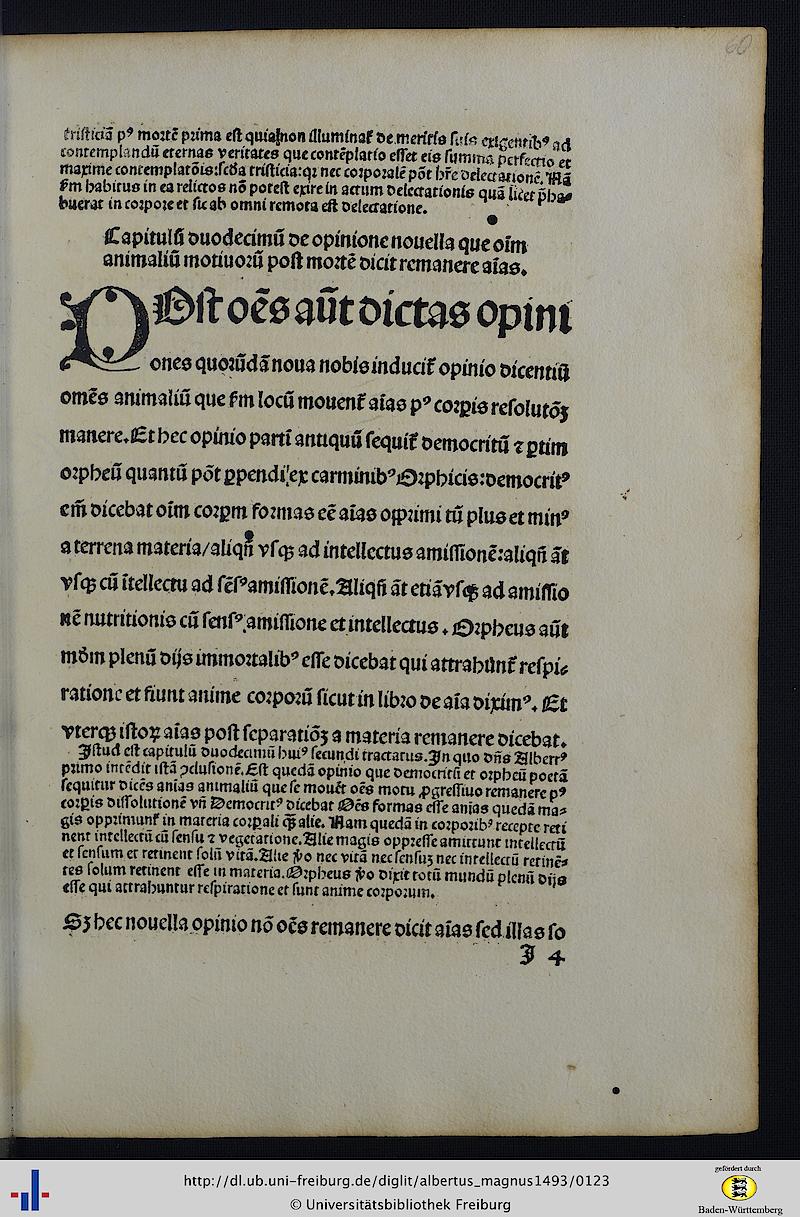 60
tristiciā pꝰ mortē prima est quia non illuminat̄ de meritis suis exigentibꝰ ad
contemplandū eternas veritates que contēplatio esset eis summa perfectio et
maxime contemplatōis: scd̄a tristicia: qꝛ nec corporalē pōt hr̄e delectationē. Nā
km̄ habitus in ea relictos nō potest exire in actum delectationis quā licet p̄ha⸗
buerat in corpore et sic ab omni remota est delectatione.
Capitulū duodecimū de opinione nouella que oīm
animaliū motiuorū post mortē dicit remanere aīas.
POst oēs aūt dictas opini
ones quorūdā noua nobis inducit̄ opinio dicentiū
omēs animaliū que km̄ locū mouent̄ aīas pꝰ corꝑis resolutōꝫ
manere. Et hec opinio partī antiquū sequit̄ democritū ⁊ ꝑtim
orpheū quantū pōt ꝑpendi ex carminibꝰ Orphicis: democritꝰ
em̄ dicebat oīm corꝑm formas eē aīas opprimi tū plus et minꝰ
a terrena materia/aliqn̄ vsqꝫ ad intellectus amissionē: aliqn̄ āt
vsqꝫ cū ītellectu ad sēsꝰ amissionē. Aliqn̄ āt etiā vsqꝫ ad amissio
nē nutritionis cū sensꝰ amissione et intellectus. Orpheus aūt
mōm plenū dijs immortalibꝰ esse dicebat qui attrahūnt̄ respi⸗
ratione et fiunt anime corporū sicut in libro de aīa diximꝰ. Et
vterqꝫ istoꝝ aīas post separatiōꝫ a materia remanere dicebat.
Istud est capitulū duodecimū huiꝰ secundi tractatus. In quo dn̄s Albertꝰ
primo intēdit istā ꝯclusionē. Est quedā opinio que democritū et orpheū poetā
sequitur dicēs anīas animaliū que se mouēt oēs motu ꝓgressiuo remanere pꝰ
corꝑis dissolutionē vn̄ Democritꝰ dicebat Oēs formas esse anīas quedā ma⸗
gis opprimunt̄ in materia corꝑali qꝫ̄ alie. Nam quedā in corporibꝰ recepte reti
nent intellectū cū sensu ⁊ vegetatione. Alie magis oppresse amittunt intellectū
et sensum et retinent solū vitā. Alie ꝟo nec vitā nec sensuꝫ nec intellectū retinē⸗
tes solum retinent esse in materia. Orpheus ꝟo dixit totū mundū plenū dijs
esse qui attrahuntur respiratione et sunt anime corporum.
Sꝫ hec nouella opinio nō oēs remanere dicit aīas sed illas so
I 4
gefördert durch
http://dl.ub.uni-freiburg.de/diglit/albertus_magnus1493/0123
© Universitätsbibliothek Freiburg
Baden-Württemberg